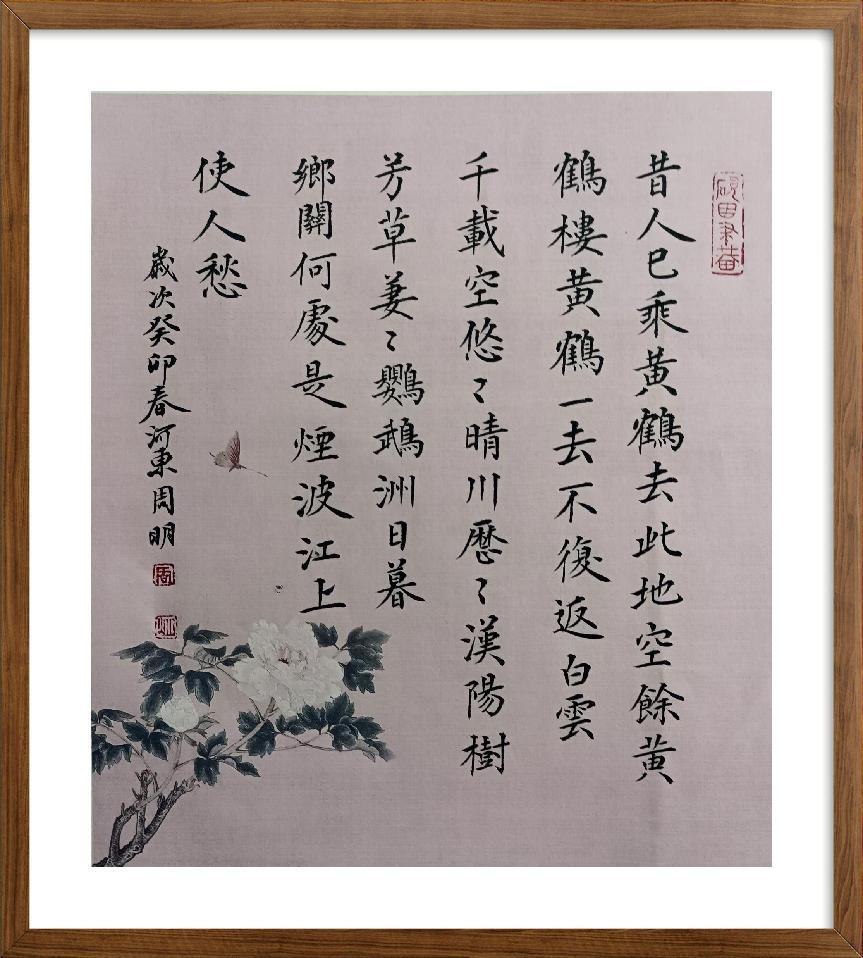 昔人已乘黃鶴去此地空餘黃
鶴樓黃鶴一去不復返白雲
千載空悠〻晴川歷〻漢陽樹
芳草萋〻鸚鵡洲日暮
鄉關何處是煙波江上
使人愁
歲次癸卯春河東周明